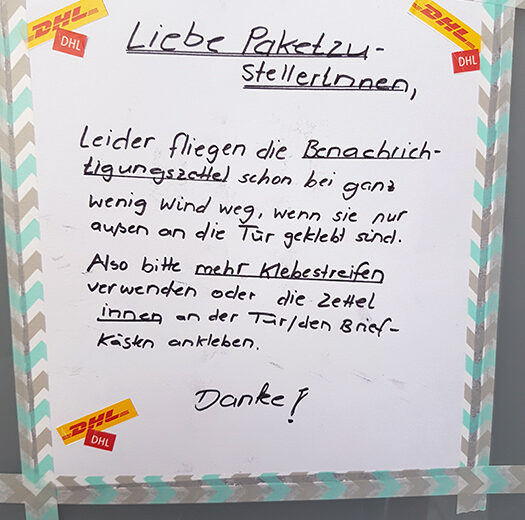 DHL
DHL
DHL
DHL
Liebe Paketzu-
stellerInnen,
Leider fliegen die Benachrich-
tigungszettel schon bei ganz
wenig Wind weg, wenn sie nur
außen an die Tür geklebt sind.
Also bitte mehr Klebestreifen
verwenden oder die Zettel
innen an der Tür/den Brief-
kästen ankleben.
Danke!
DHL
DHL